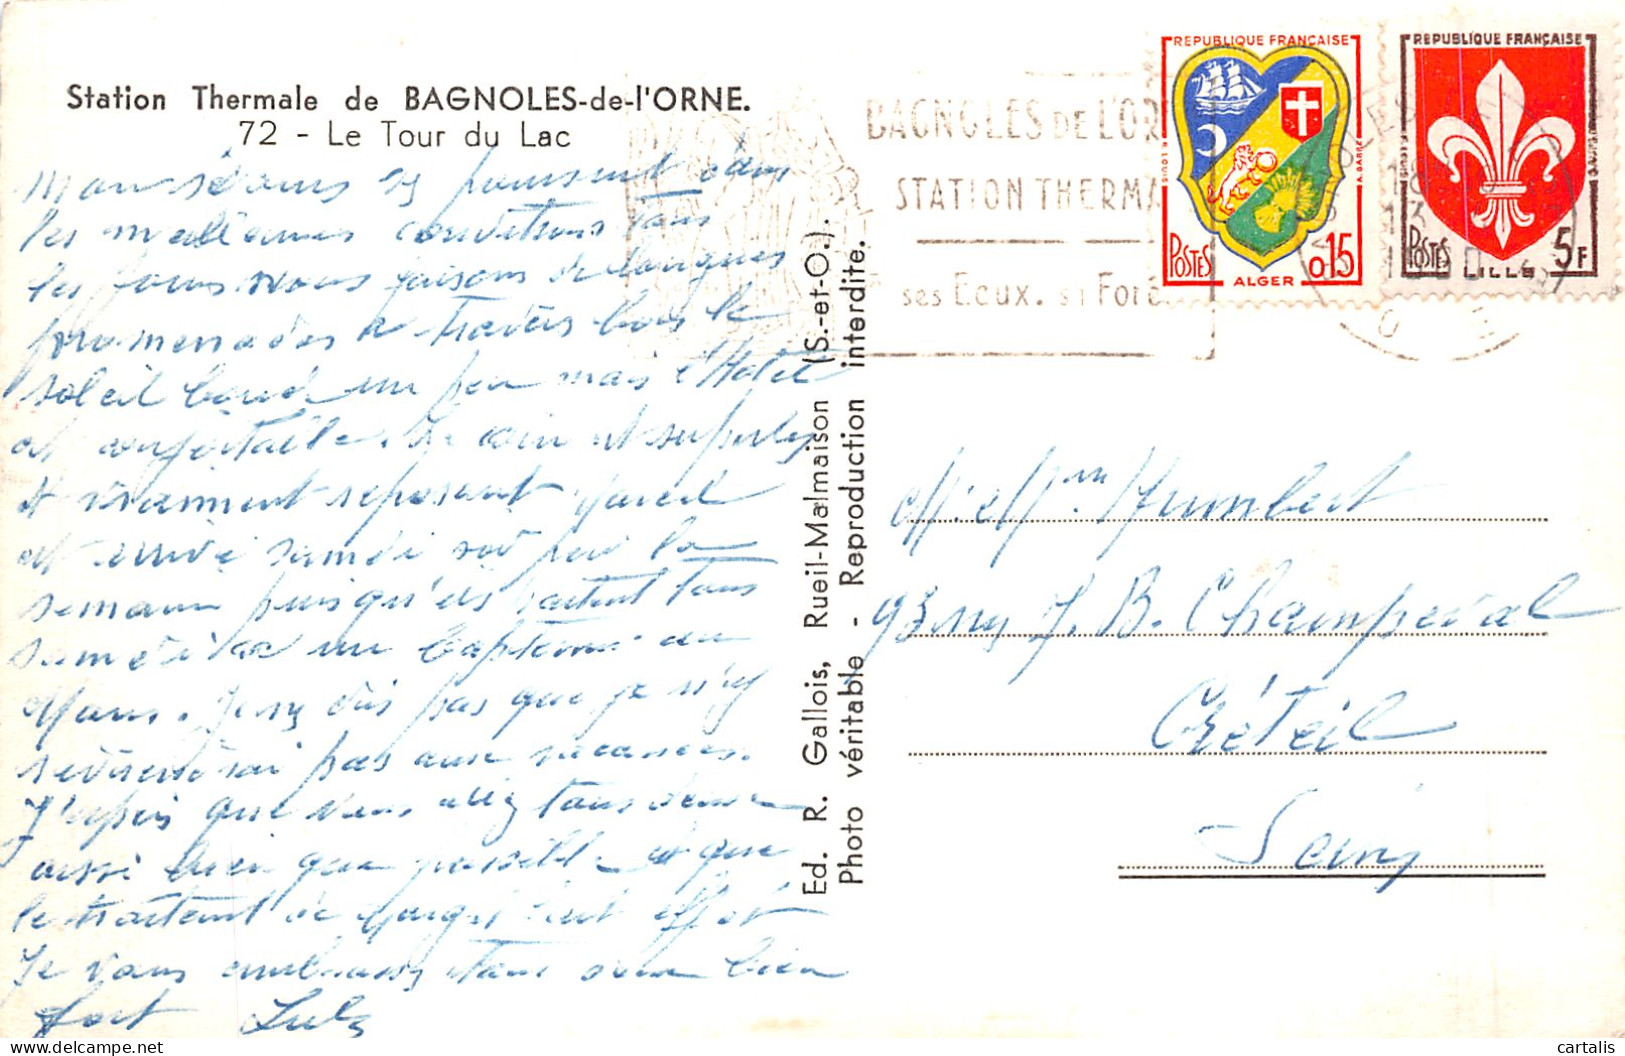 Station Thermale de BAGNOLES-de-l'ORNE.
72 - Le Tour du Lac
dans
les meilleures conditions tous
les jours nous faisons de longues
promenades a travers bois le
soleil boude un peu mais l'Hotel
et confortable. Le coin et superbe
et vraiment reposent Marcel
et arrivé samedi soir pour la
semaine puisqu'ils tous
samedi a un bapteme au
Mans. Je ne dis pas que je n'y
pas aux vacances.
J'espèr que vous allez tous deux
aussi bien que possible et que
le traitement de fait effet
Je vous embrasse tous deux bien
fort Lulu
Ed. R. Gallois, Rueil-Malmaison (S.-et-O.).
Photo véritable - Reproduction interdite.
BAGNOLES DE L'OR
STATION THERMA
ses Eaux. sa Forê
REPUBLIQUE FRANÇAISE
POSTES
0,15
ALGER
REPUBLIQUE FRANÇAISE
POSTES
5F
LILLE
M. et Mme Humbert
93 rue J. B. Champeval
Créteil
Seine
cartalis